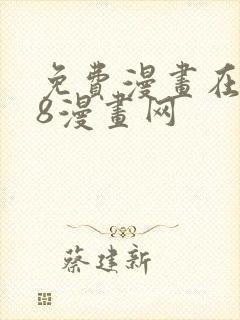 免費漫畫在
8漫畫网
蔡建新